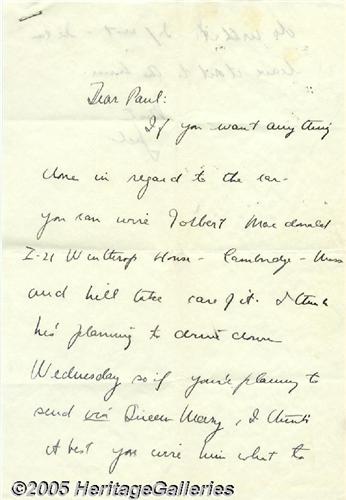 Dear Paul:
If you want anything
done in regard to the car
you can wire Tolbert Macdonald
I-21 Winthrop House - Cambridge - Mass
and he'll take care of it. I think
he's planning to drive down
Wednesday so if you're planning to
send via Queen Mary, I think
it best you wire him what to
©2005 HeritageGalleries